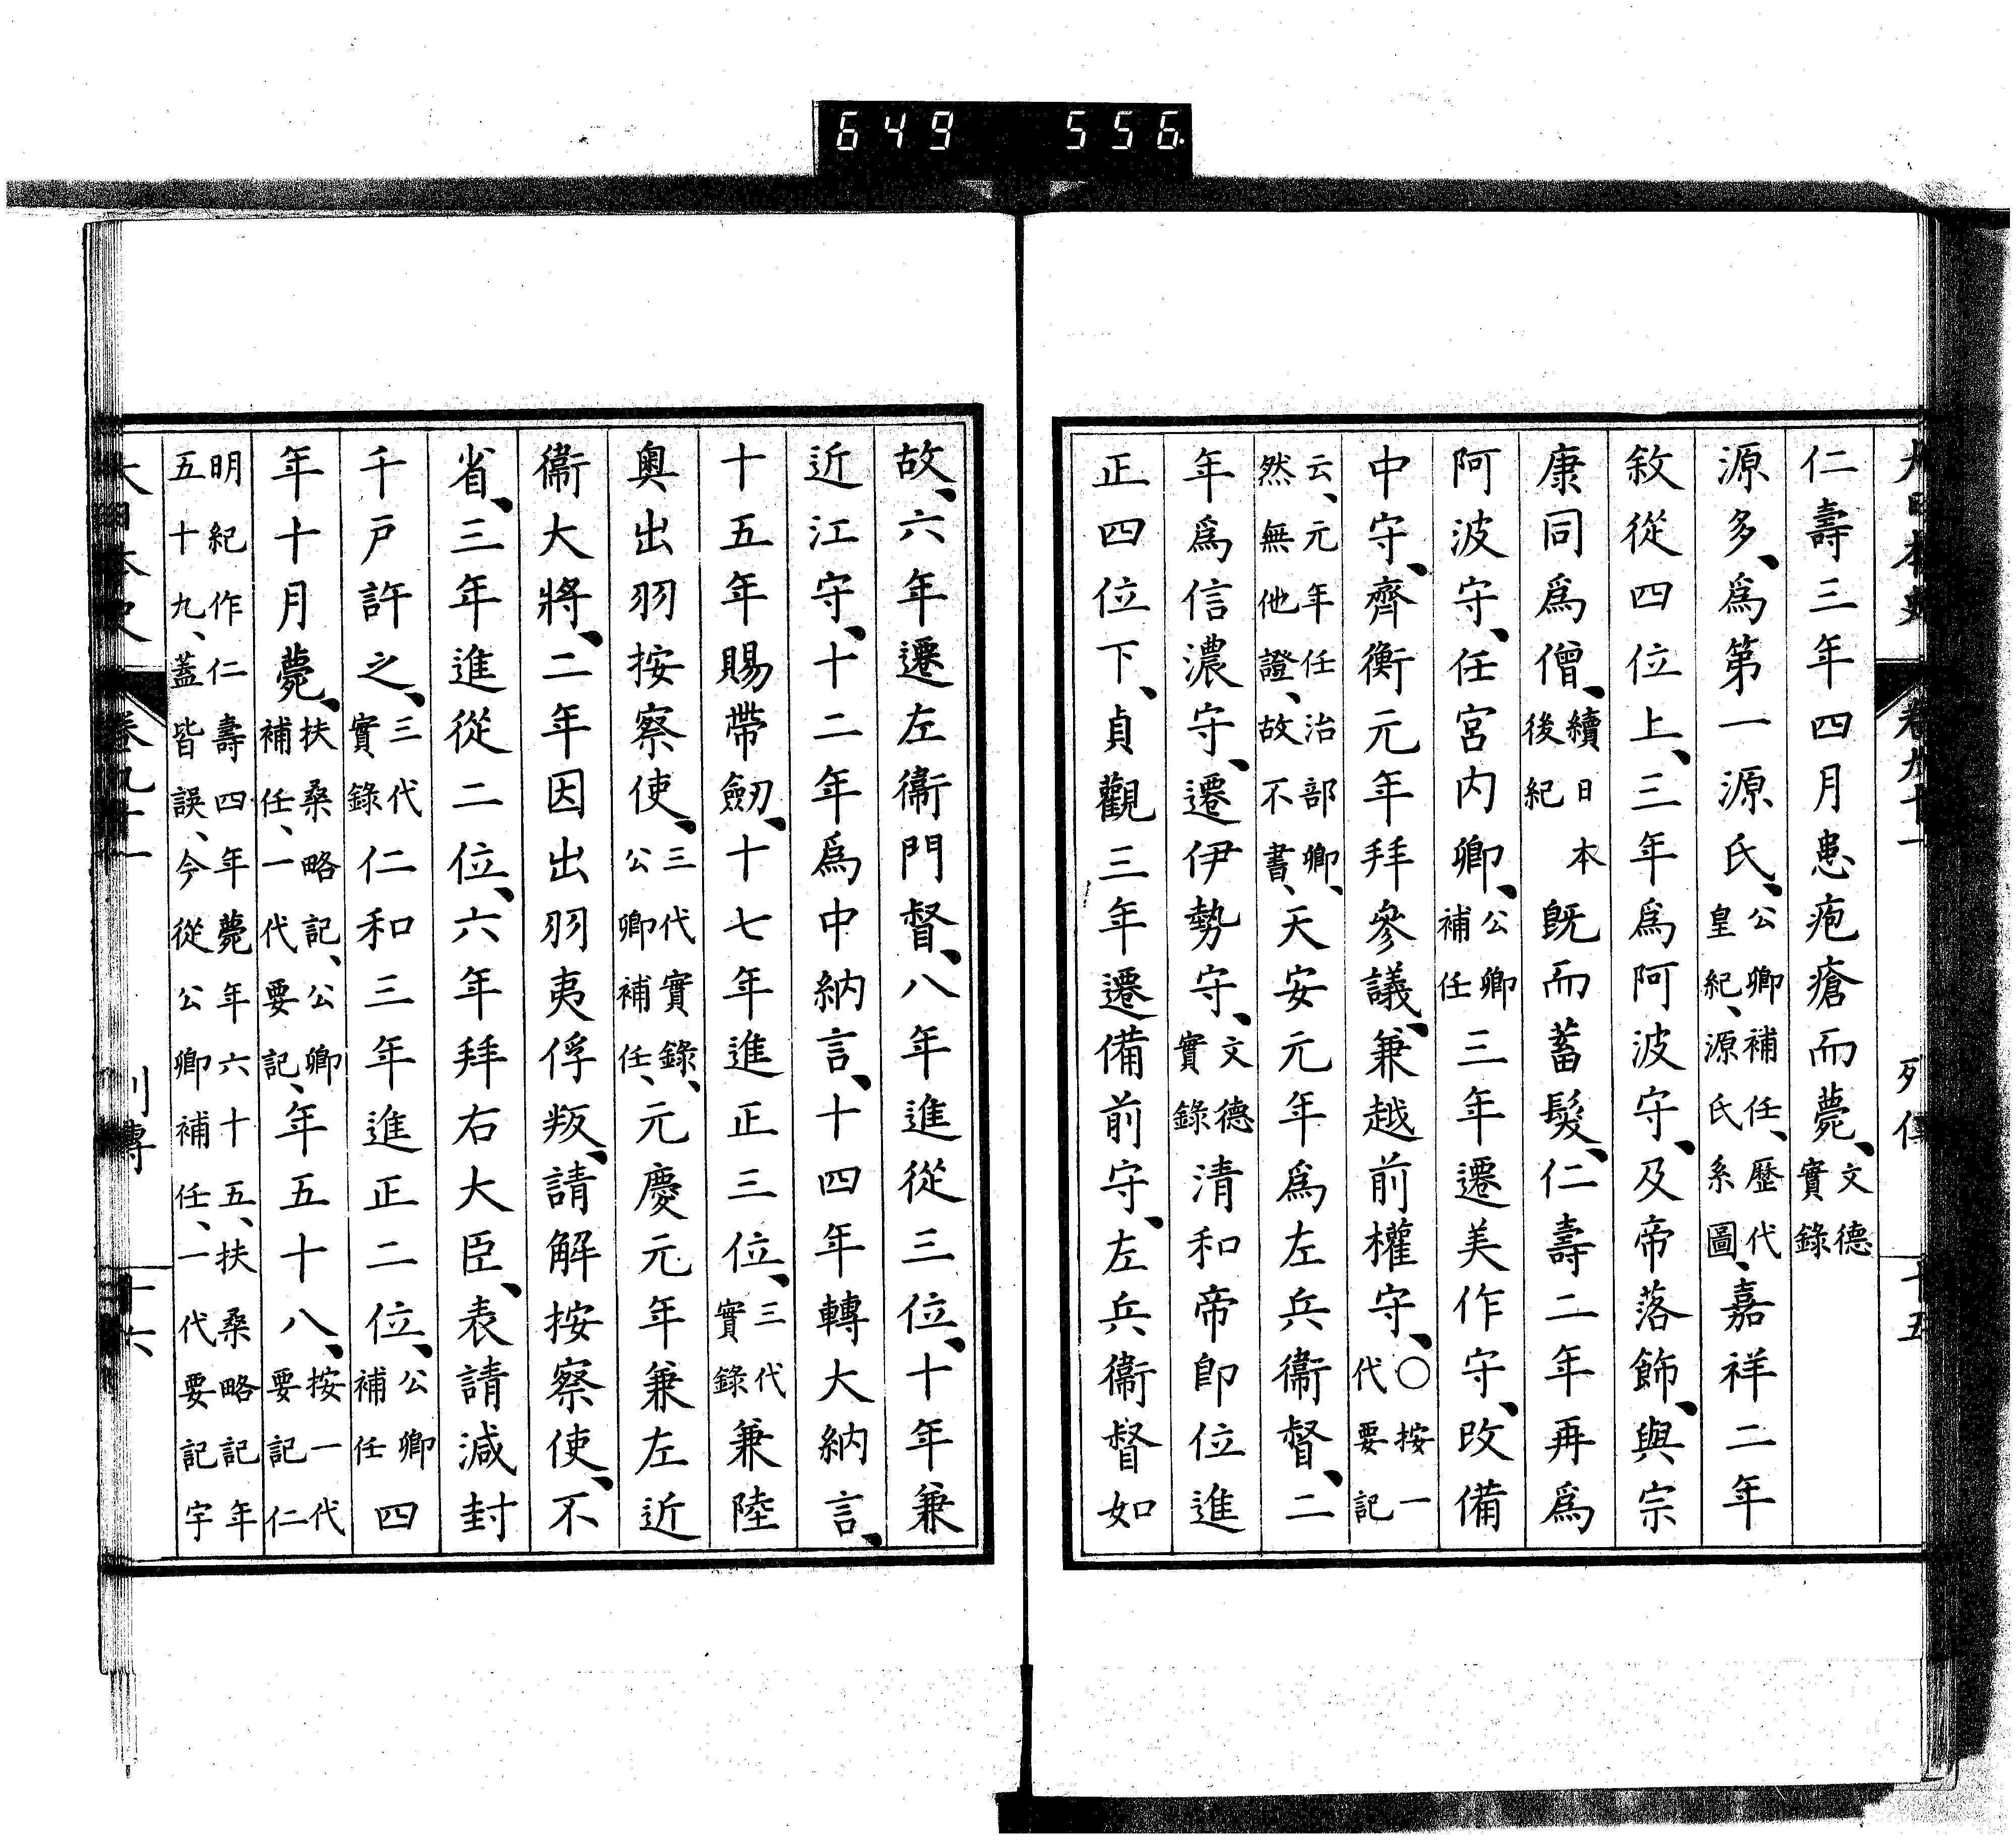 649 556
大日本史 卷九十一 列傳 十五
仁壽三年四月患疱瘡而薨、文德實錄
源多、爲第一源氏、公卿補任、歷代皇紀、源氏系圖、嘉祥二年
敘從四位上、三年爲阿波守、及帝落飾、與宗
康同爲僧、續日本後紀既而蓄髮、仁壽二年再爲
阿波守、任宮内卿、公卿補任三年遷美作守、改備
中守、齊衡元年拜參議、兼越前權守、○按一代要記
云、元年任治部卿、然無他證、故不書、天安元年爲左兵衞督、二
年爲信濃守、遷伊勢守、文德實錄清和帝卽位進
正四位下、貞觀三年遷備前守、左兵衞督如
故、六年遷左衞門督、八年進從三位、十年兼
近江守、十二年爲中納言、十四年轉大納言、
十五年賜帶劒、十七年進正三位、三代實錄兼陸
奧出羽按察使、三代實錄、公卿補任、元慶元年兼左近
衞大將、二年因出羽夷俘叛、請解按察使、不
省、三年進從二位、六年拜右大臣、表請減封
千戸許之、三代實錄仁和三年進正二位、公卿補任四
年十月薨、扶桑略記、公卿補任、一代要記、年五十八、按一代要記仁
明紀作仁壽四年薨年六十五、扶桑略記年五十九、蓋皆誤、今從公卿補任、一代要記宇
大日本史 卷九十一 列傳 十六